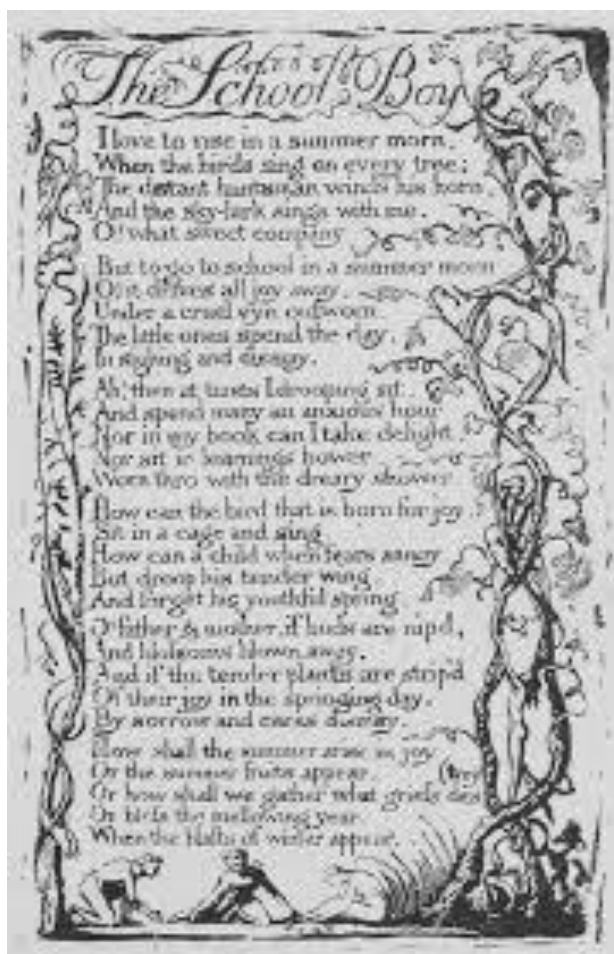 The School Boy
I love to rise in a summer morn,
When the birds sing on every tree;
The distant huntsman winds his horn,
And the sky-lark sings with me.
O! what sweet company
But to go to school in a summer morn
O! it drives all joy away.
Under a cruel eye outworn,
The little ones spend the day,
In sighing and dismay.
Ah! then at times I drooping sit,
And spend many an anxious hour
Nor in my book can I take delight,
Nor sit in learnings bower
Worn thro with the dreary shower
How can the bird that is born for joy,
Sit in a cage and sing
How can a child when fears annoy
But droop his tender wing
And forget his youthful spring
O! father & mother, if buds are nip'd,
And blossoms blown away,
And if the tender plants are strip'd
Of their joy in the springing day,
By sorrow and cares dismay,
How shall the summer arise in joy
Or the summer fruits appear.
Or how shall we gather what griefs des(troy
Or bless the mellowing year,
When the blasts of winter appear.